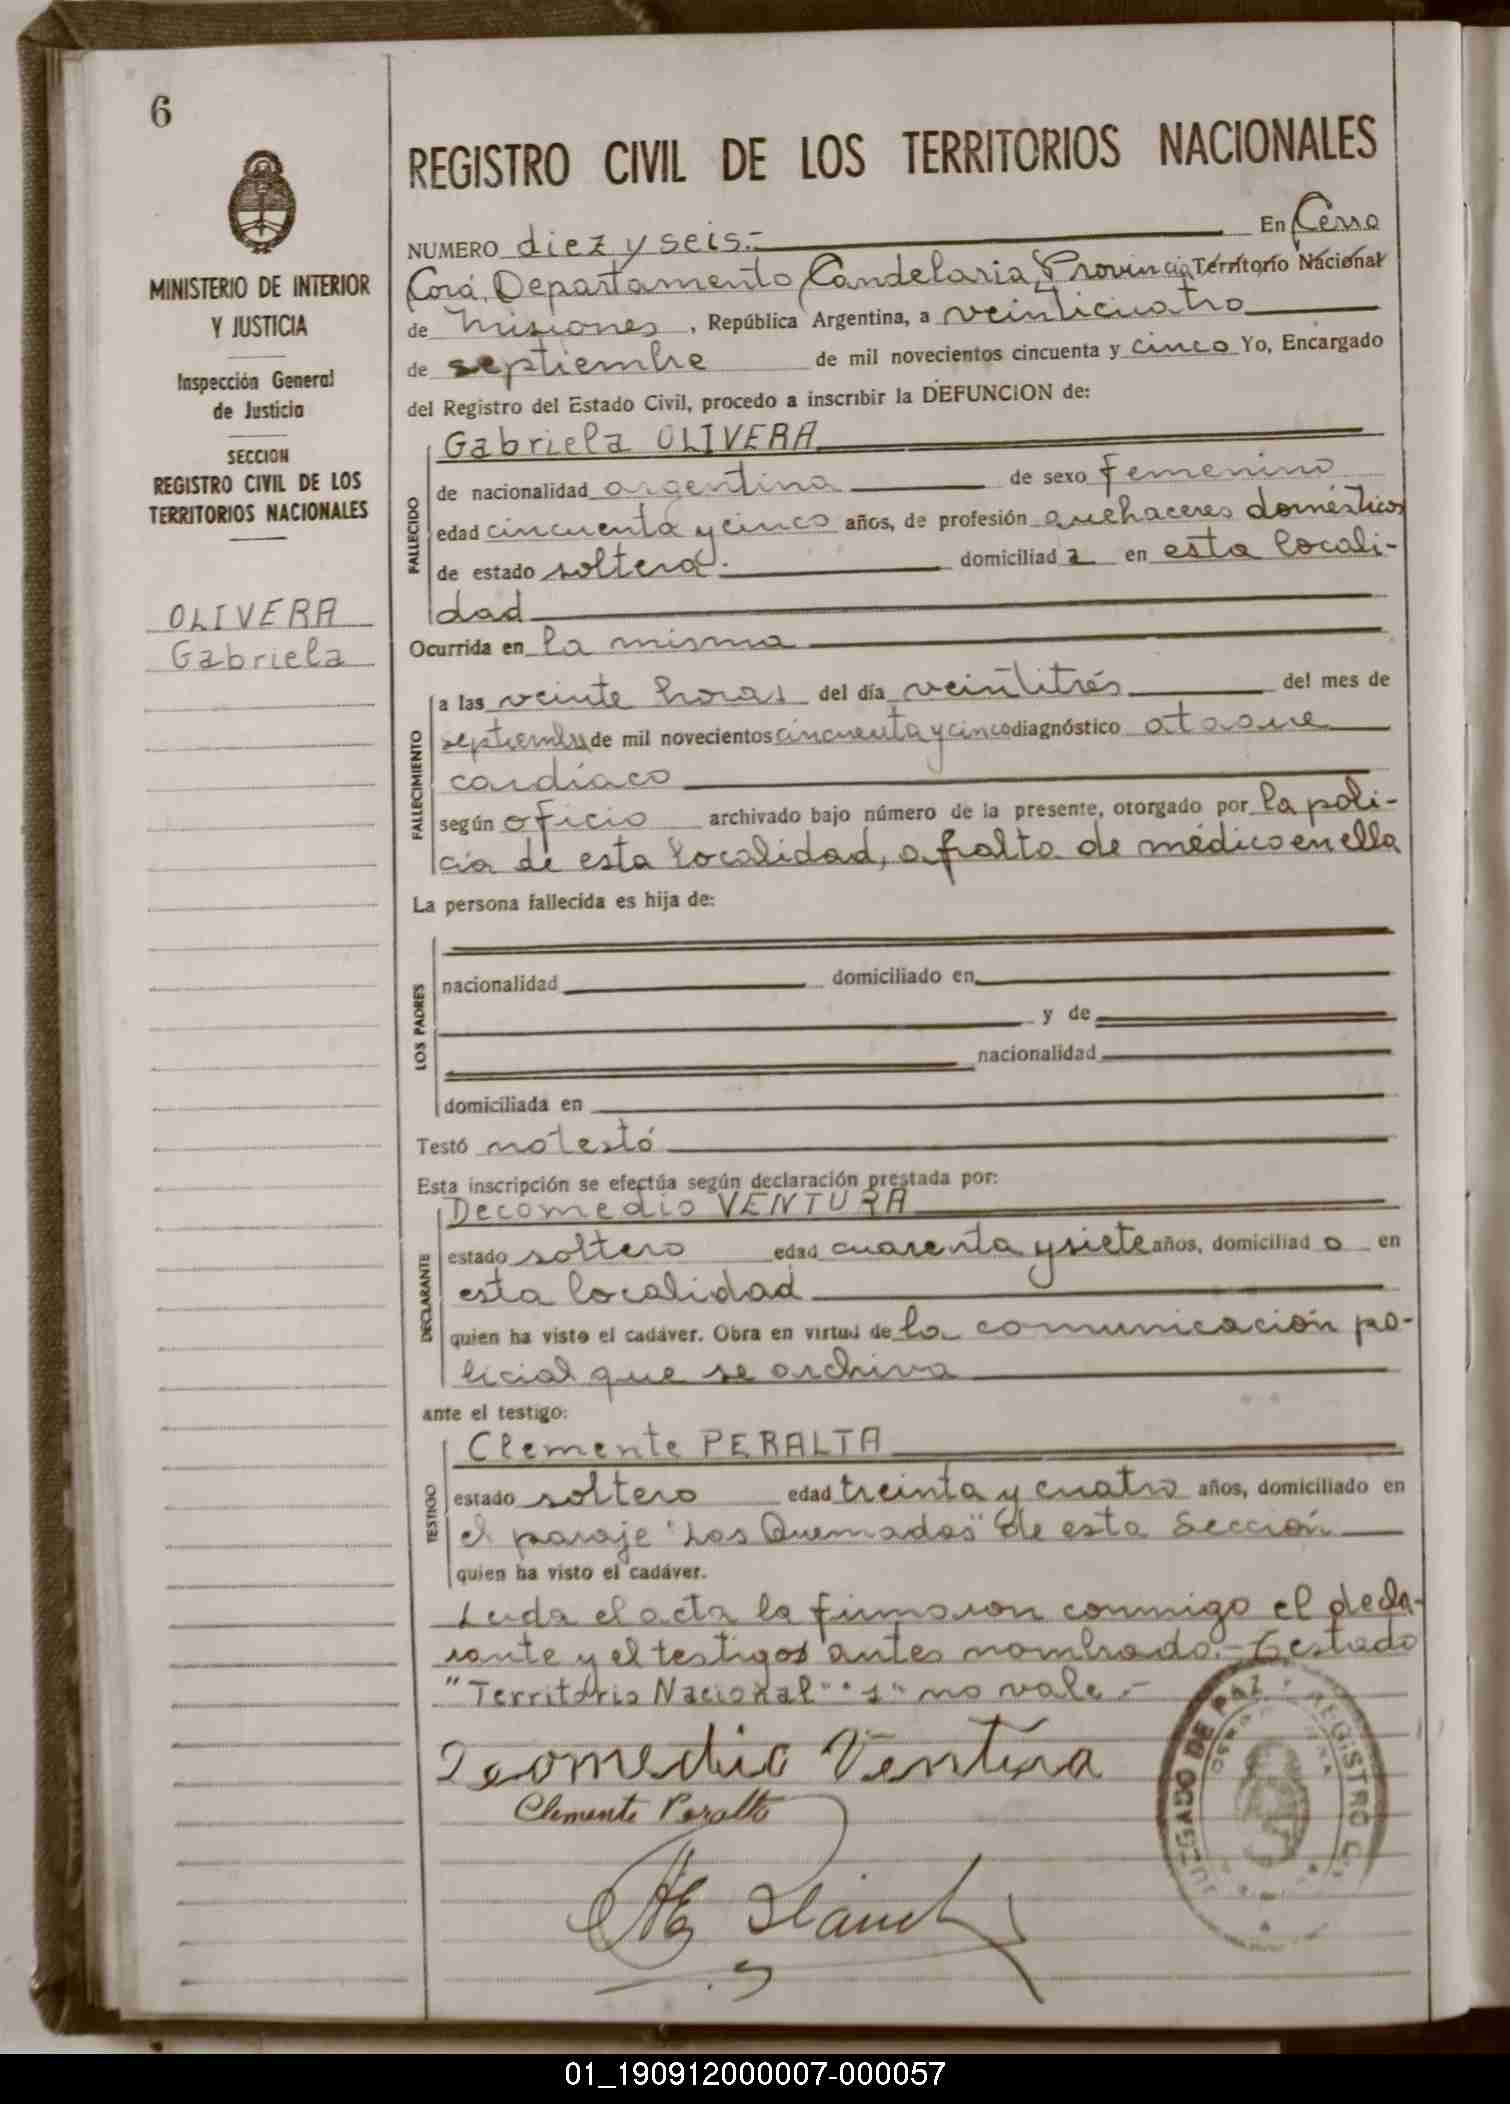 6
REGISTRO CIVIL DE LOS TERRITORIOS NACIONALES
MINISTERIO DE INTERIOR
Y JUSTICIA
Inspección General
de Justicia
SECCION
REGISTRO CIVIL DE LOS
TERRITORIOS NACIONALES
OLIVERA
Gabriela
NUMERO diez y seis.- En Cerro
Corá, Departamento Candelaria, Provincia Territorio Nacional
de Misiones, República Argentina, a veinticuatro
de septiembre de mil novecientos cincuenta y cinco Yo, Encargado
del Registro del Estado Civil, procedo a inscribir la DEFUNCION de:
FALLECIDO
Gabriela OLIVERA
de nacionalidad argentina de sexo femenino
edad cincuenta y cinco años, de profesión quehaceres domésticos
de estado soltera. domiciliad a en esta locali-
dad
Ocurrida en la misma
FALLECIMIENTO
a las veinte horas del día veintitrés del mes de
septiembre de mil novecientos cincuenta y cinco diagnóstico ataque
cardíaco
según oficio archivado bajo número de la presente, otorgado por la poli-
cia de esta localidad, a falta de médico en ella
La persona fallecida es hija de:
LOS PADRES
nacionalidad domiciliado en
y de
nacionalidad
domiciliada en
Testó no testó
Esta inscripción se efectúa según declaración prestada por:
DECLARANTE
Decomedio VENTURA
estado soltero edad cuarenta y siete años, domiciliad o en
esta localidad
quien ha visto el cadáver. Obra en virtud de la comunicación po-
licial que se archiva
ante el testigo:
TESTIGO
Clemente PERALTA
estado soltero edad treinta y cuatro años, domiciliado en
el paraje "Los Quemados" de esta Sección
quien ha visto el cadáver.
Leida el acta la firmaron conmigo el decla-
rante y el testigos antes nombrado.- Testado
"Territorio Nacional" "s" no vale.-
Decomedio Ventura
Clemente Peralta
JUZGADO DE PAZ REGISTRO
01_190912000007-000057